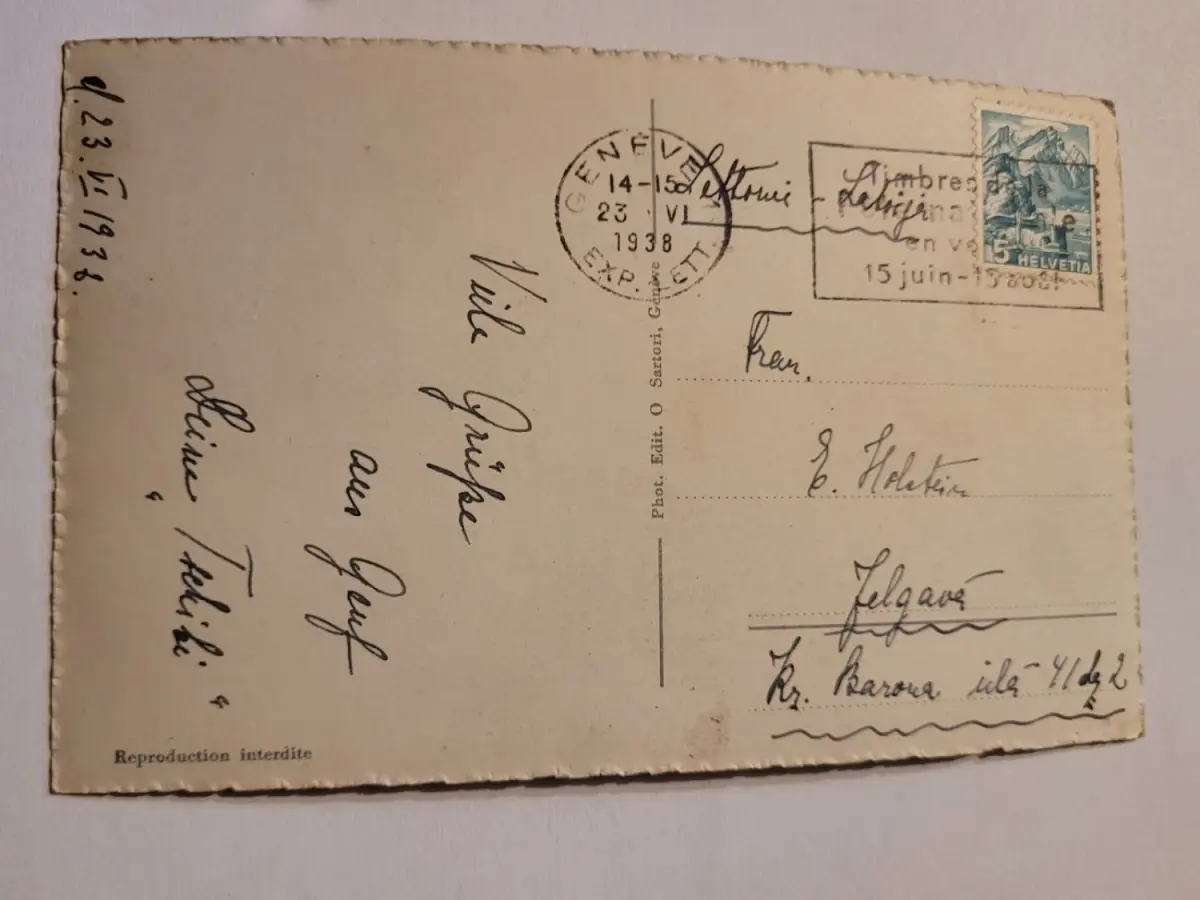 d. 23. VI 1938.
Viele Grüße
aus Genf
Deine "Tschibi"
Reproduction interdite
Phot. Edit. O Sartori, Genève
GENÈVE
14-15
23 VI
1938
EXP. LETT.
Timbres de la
en ve
15 juin-15
15 HELVETIA
Lettonie - Latvija
Frau.
E. Holstein
Jelgavā
Kr. Barona ielā 41 dz 2